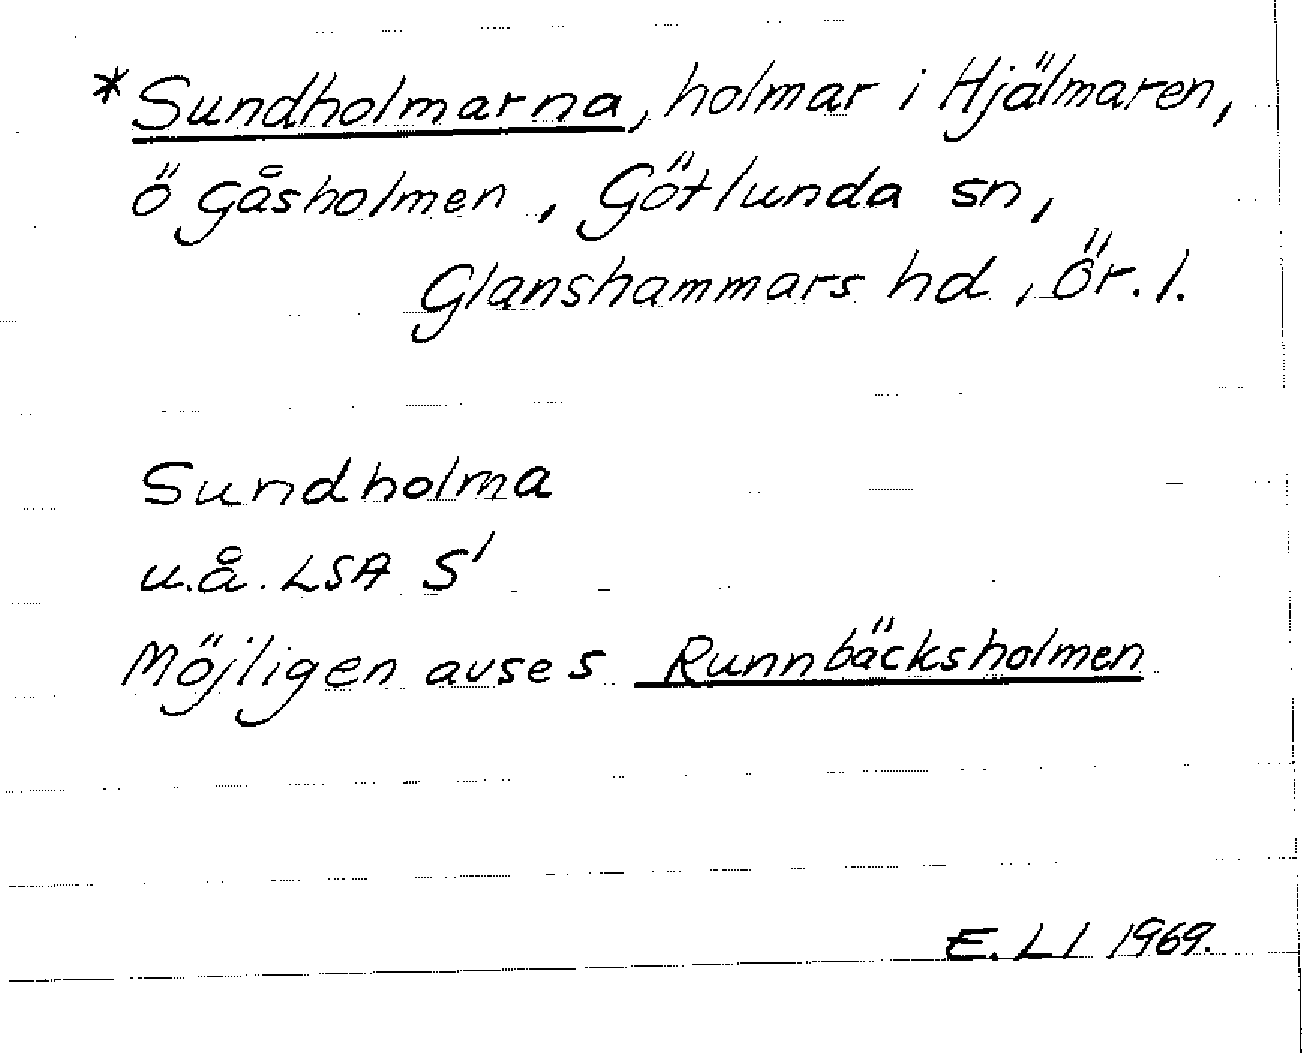 *Sundholmarna, holmar i Hjälmaren,
ö Gåsholmen, Götlunda sn,
Glanshammars hd, Ör. l.
Sundholma
u.å. LSA S'
Möjligen avses Runnbäcksholmen
E. Ll 1969.